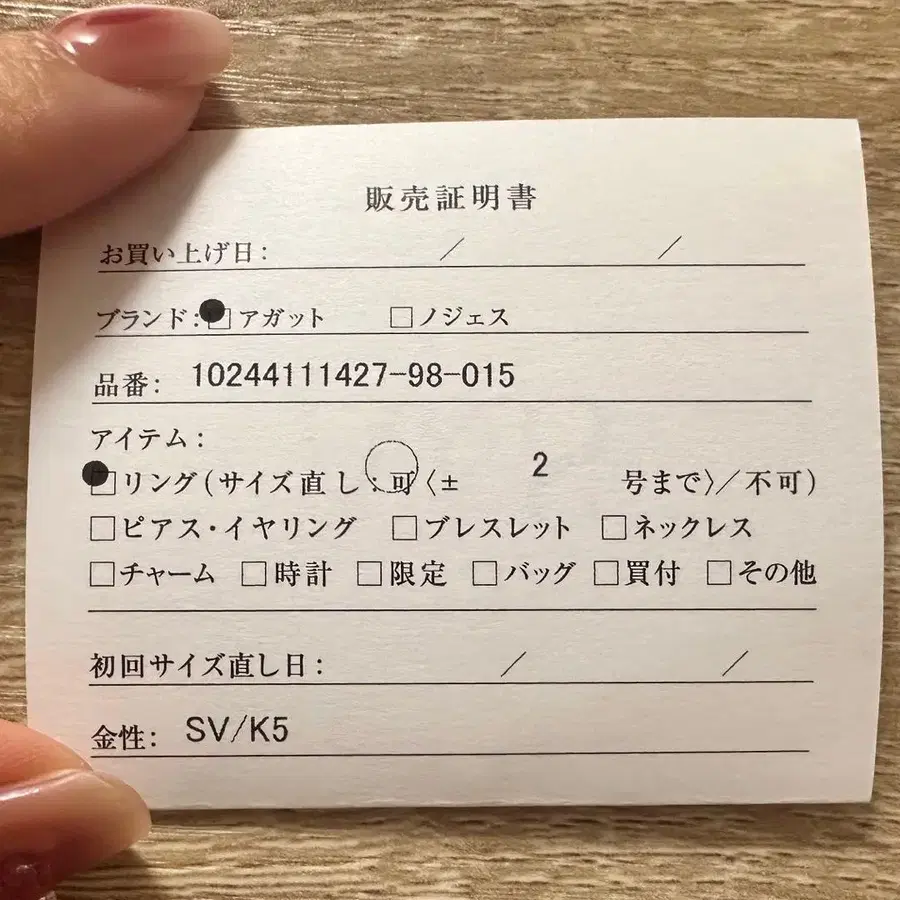 販売証明書
お買い上げ日: ／ ／
ブランド: □アガット □ノジェス
品番: 10244111427-98-015
アイテム:
□リング(サイズ直し:可〈± 2 号まで〉／不可)
□ピアス・イヤリング □ブレスレット □ネックレス
□チャーム □時計 □限定 □バッグ □買付 □その他
初回サイズ直し日: ／ ／
金性: SV/K5